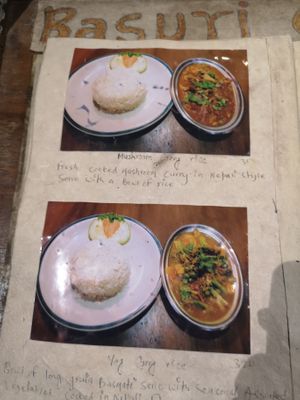 BASUTI
Mushroom Curry rice
Fresh cooked Mushroom curry in Nepali style
Serve with a Bowl of rice
Veg Curry rice
Bowl of long grain Basmati Serve with Seasonal Assorted
Vegetables cooked in Nepali